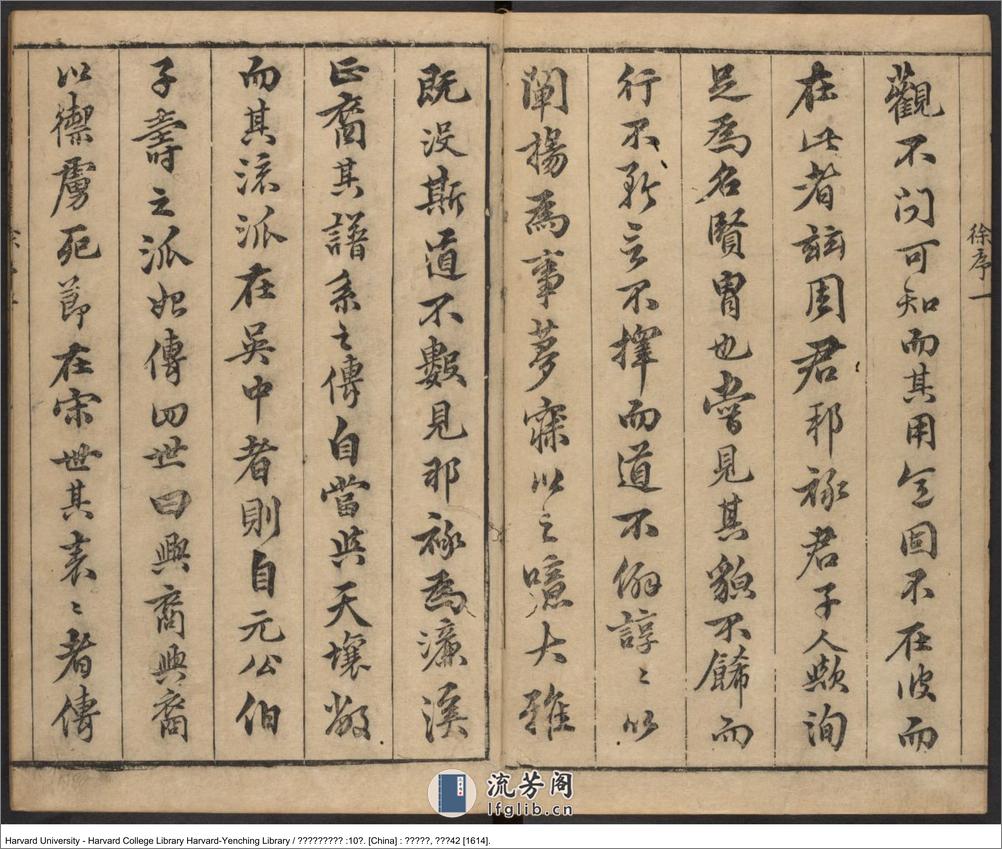 徐序一
觀不問可知而其用心固不在彼而
在此者玆周君邪祿君子人歟洵
足為名賢胄也嘗見其貌不餙而
行不矜言不擇而道不俯諄〻以
闡揚為事夢寐以之噫大雅
既沒斯道不數見耶祿為濂溪
正裔其譜系之傳自當與天壤敝
而其流派在吳中者則自元公伯
子壽之派始傳四世曰興裔興裔
以禦虜死節在宋世其表〻者傳
流芳阁
lfglib.cn
Harvard University - Harvard College Library Harvard-Yenching Library / ????????? :10?. [China] : ?????, ???42 [1614].